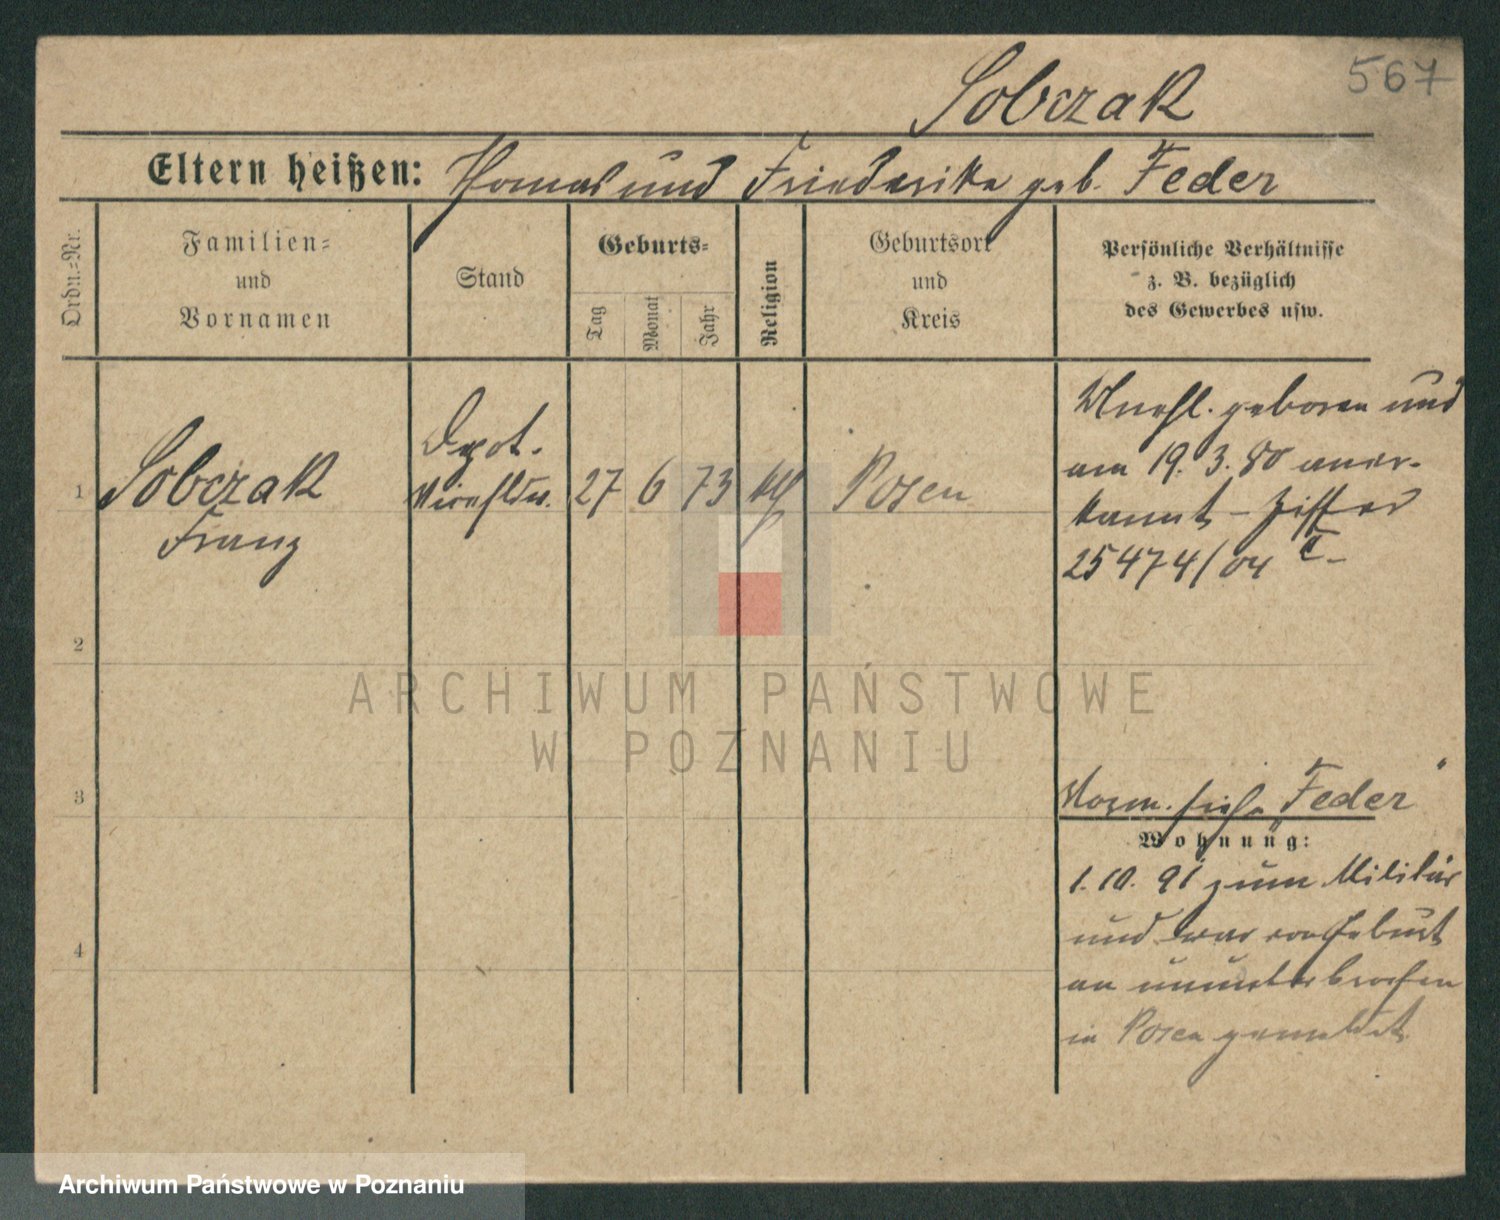 567
Sobczak
Eltern heißen: Thomas und Friederika geb. Feder
Ordn.=Nr.
Familien=
und
Vornamen
Stand
Geburts=
Tag
Monat
Jahr
Religion
Geburtsort
und
Kreis
Persönliche Verhältnisse
z. B. bezüglich
des Gewerbes usw.
1
Sobczak
Franz
Depot.
27
6
73
kth
Posen
Unehl. geboren und
am 19. 3. 80 aner-
kannt - Ziffer
25474/04 I -
2
3
Vorm. siehe „Feder"
Wohnung:
1. 10. 91 zum Militär
und war von Geburt
an ununterbrochen
in Posen gemeldet
4
ARCHIWUM PAŃSTWOWE
W POZNANIU
Archiwum Państwowe w Poznaniu